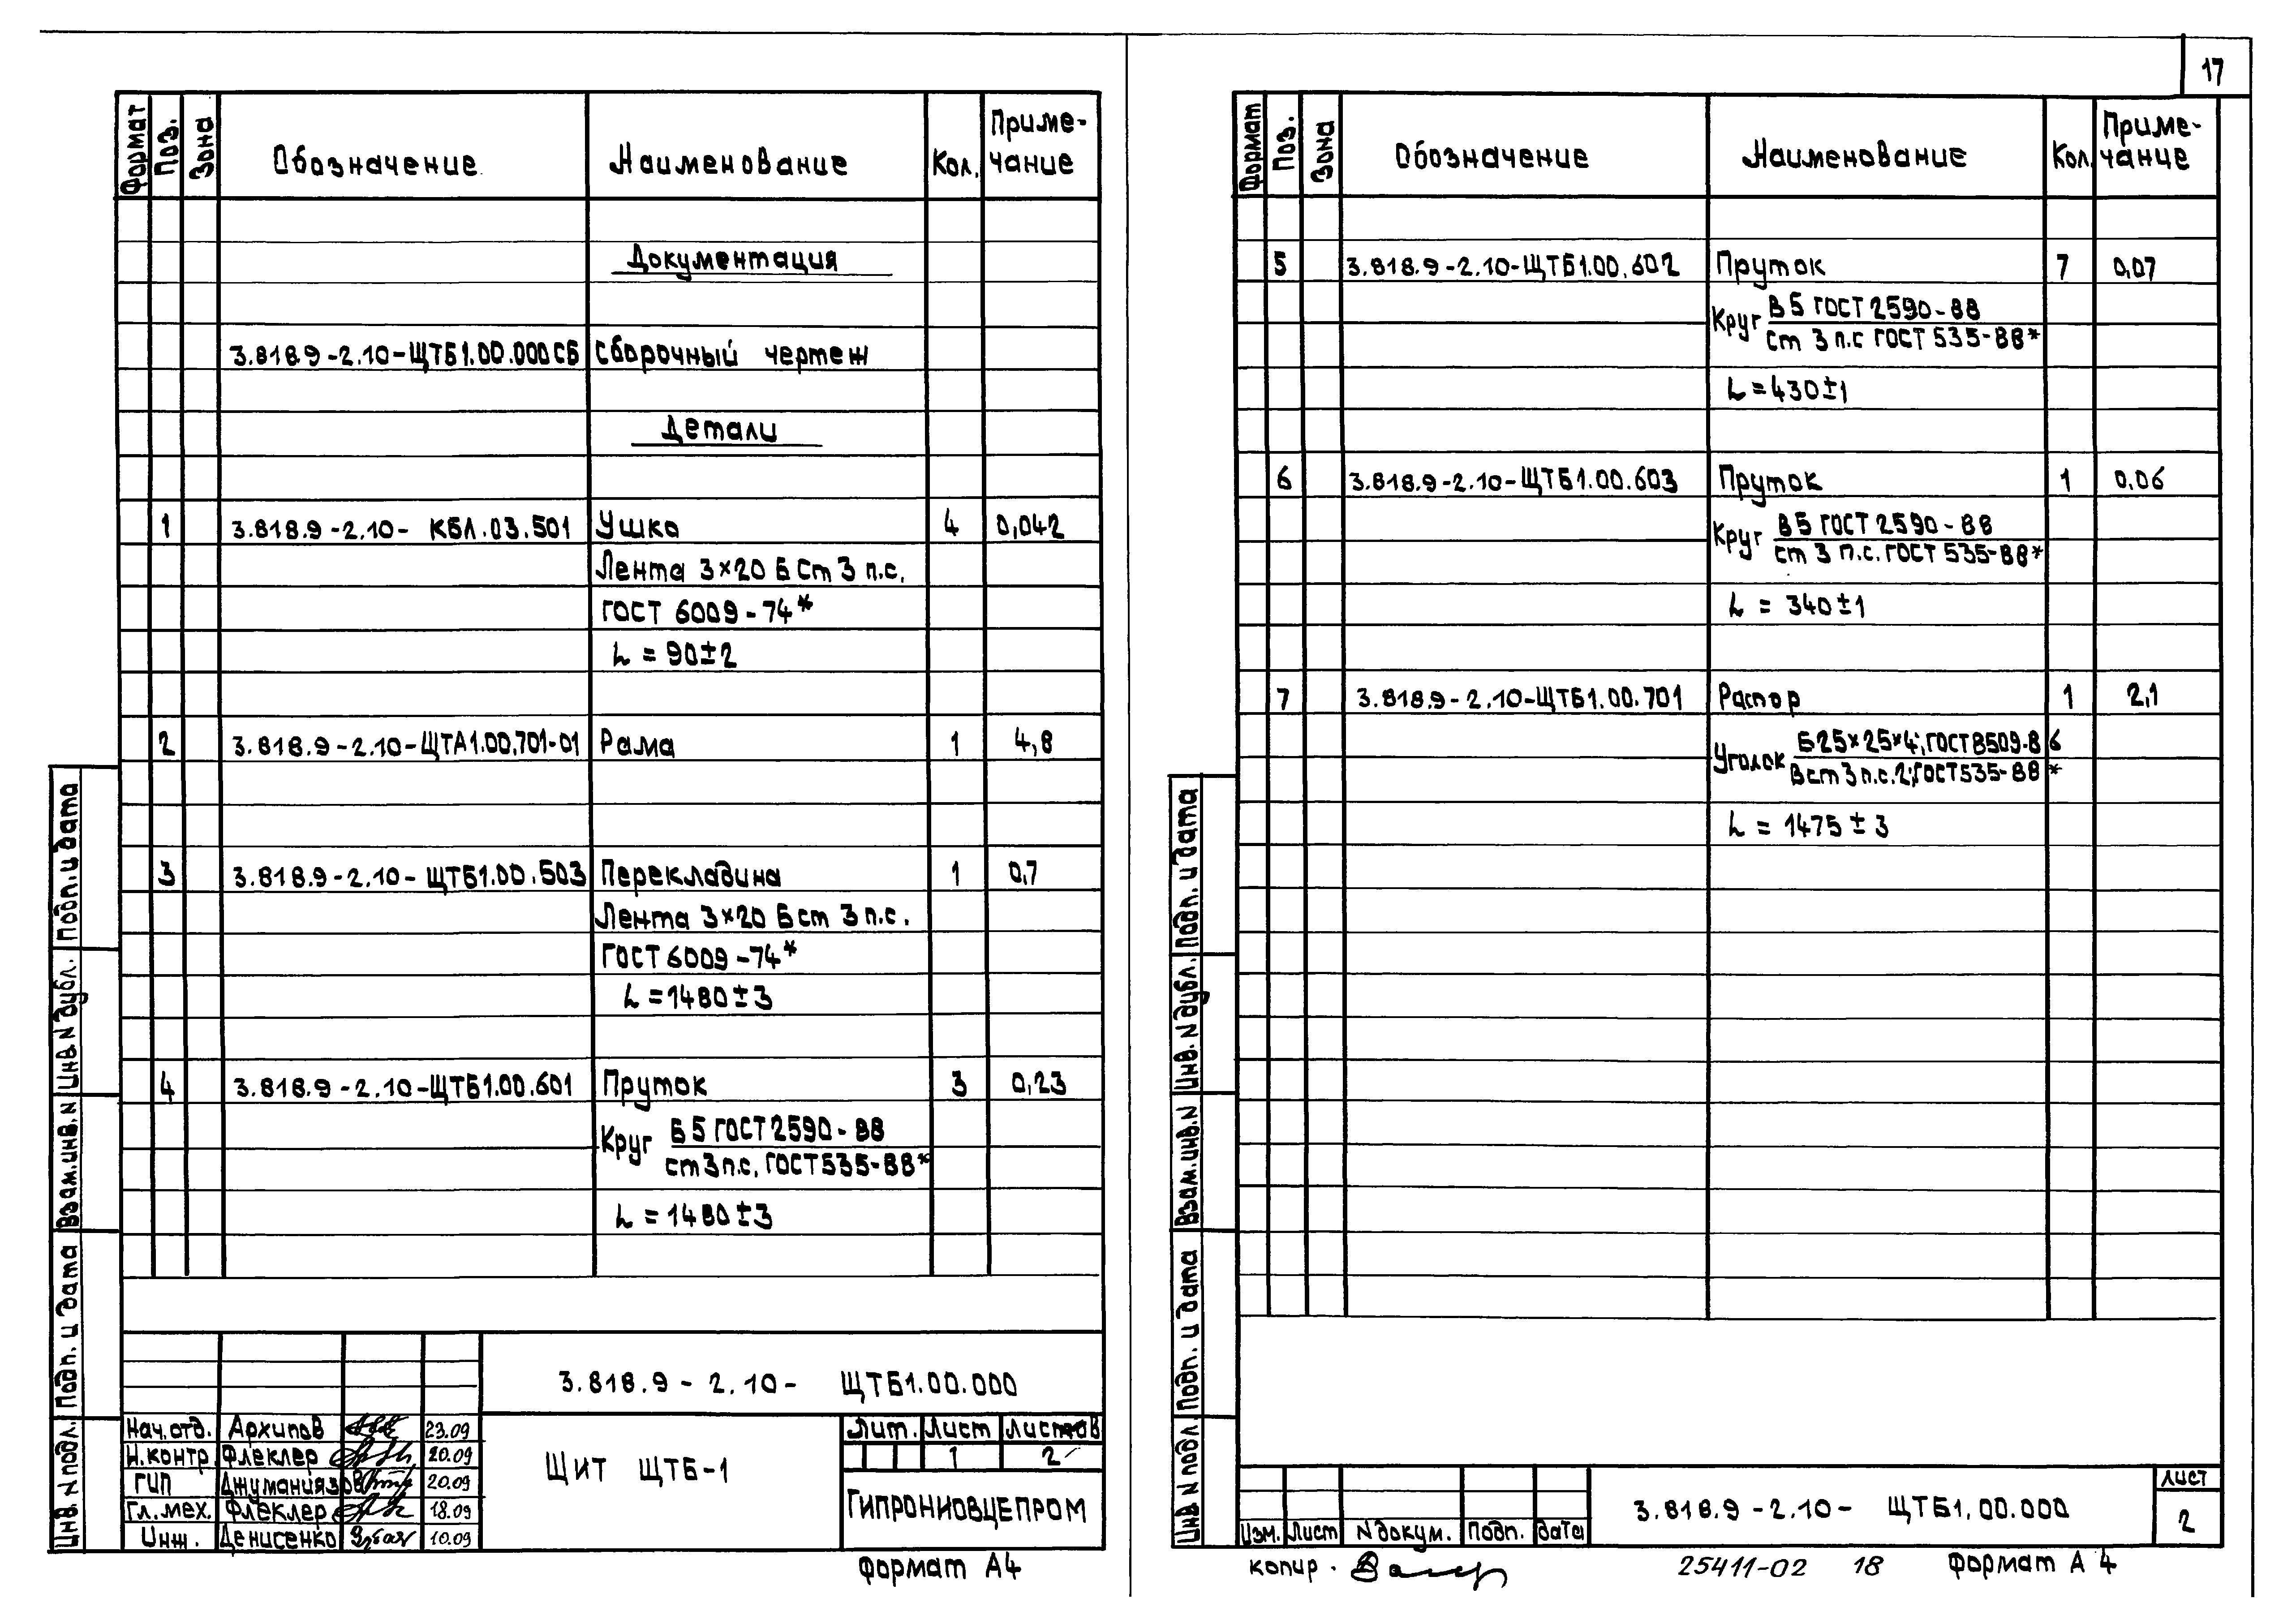 17
Формат Поз. Зона Обозначение Наименование Кол. Приме-чание
Документация
3.818.9-2.10-ЩТБ1.00.000СБ Сборочный чертеж
Детали
1 3.818.9-2.10- КБЛ.03.501 Ушко 4 0,042
Лента 3×20 Б Ст 3 п.с.
ГОСТ 6009-74*
L = 90±2
2 3.818.9-2.10-ЩТА1.00.701-01 Рама 1 4,8
3 3.818.9-2.10-ЩТБ1.00.503 Перекладина 1 0,7
Лента 3×20 Б ст 3 п.с.
ГОСТ 6009-74*
L = 1480±3
4 3.818.9-2.10-ЩТБ1.00.601 Пруток 3 0,23
Круг Б5 ГОСТ 2590-88
ст 3 п.с. ГОСТ 535-88*
L = 1480±3
3.818.9-2.10- ЩТБ1.00.000
Нач.отд. Архипов 23.09
Н.контр. Флеклер 20.09
ГИП Джуманиязов 20.09
Гл.мех. Флеклер 18.09
Инж. Денисенко 10.09
ЩИТ ЩТБ-1
Лит. Лист Листов
1 2
ГИПРОНИОВЦЕПРОМ
Формат А4
Подп. и дата
Инв. N дубл.
Взам.инв.N
Подп. и дата
Инв. N подл.
Формат Поз. Зона Обозначение Наименование Кол. Приме-чание
5 3.818.9-2.10-ЩТБ1.00.602 Пруток 7 0,07
Круг В5 ГОСТ 2590-88
ст 3 п.с ГОСТ 535-88*
L = 430±1
6 3.818.9-2.10-ЩТБ1.00.603 Пруток 1 0,06
Круг В5 ГОСТ 2590-88
ст 3 п.с. ГОСТ 535-88*
L = 340±1
7 3.818.9-2.10-ЩТБ1.00.701 Распор 1 2,1
Уголок Б25×25×4; ГОСТ 8509-86
Вст 3 п.с.2; ГОСТ 535-88*
L = 1475±3
Подп. и дата
Инв. N дубл.
Взам.инв.N
Подп. и дата
Инв N подл
Изм. Лист N докум. Подп. дата
3.818.9-2.10- ЩТБ1.00.000
лист
2
копир. 25411-02 18 Формат А4